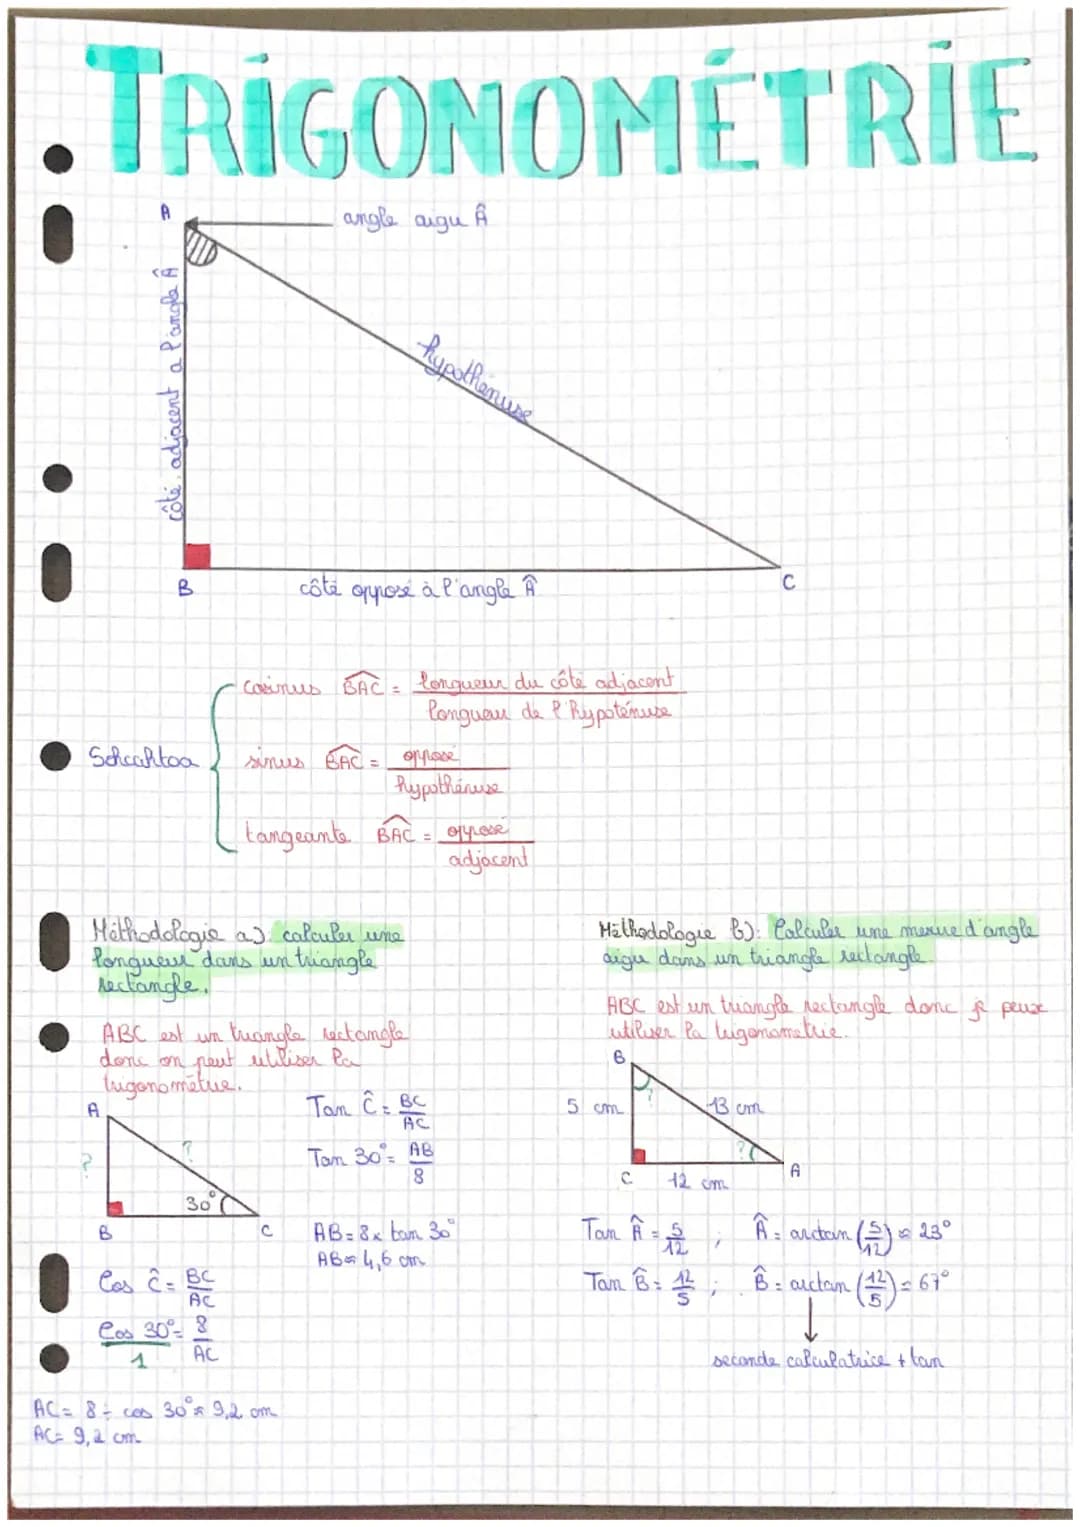 TRIGONOMÉTRIE
A
angle aigu Â
côté adjacent a l'angle Â
hypothénuse
B
côté opposé à l'angle Â
C
Sohcahtoa
cosinus BAC = longueur du côté adjacent
longueur de l'hypoténuse
sinus BAC = opposé
hypothénuse
tangeante BAC = opposé
adjacent
Méthodologie a): calculer une
longueur dans un triangle
rectangle.
ABC est un triangle rectangle
donc on peut utiliser la
trigonométrie.
A
?
?
30°
B
C
Tan Ĉ = BC
AC
Tan 30° = AB
8
AB = 8 x tan 30°
AB ≈ 4,6 cm
Cos Ĉ = BC
AC
Cos 30° = 8
1 AC
AC = 8 ÷ cos 30° ≈ 9,2 cm
AC = 9,2 cm
Méthodologie b): Calculer une mesure d'angle
aigu dans un triangle rectangle.
ABC est un triangle rectangle donc je peux
utiliser la trigonométrie.
B
5 cm
?
13 cm
?
C
12 cm
A
Tan Â = 5/12 ; Â = arctan (5/12) ≈ 23°
Tan B̂ = 12/5 ; B̂ = arctan (12/5) = 67°
seconde calculatrice + tan